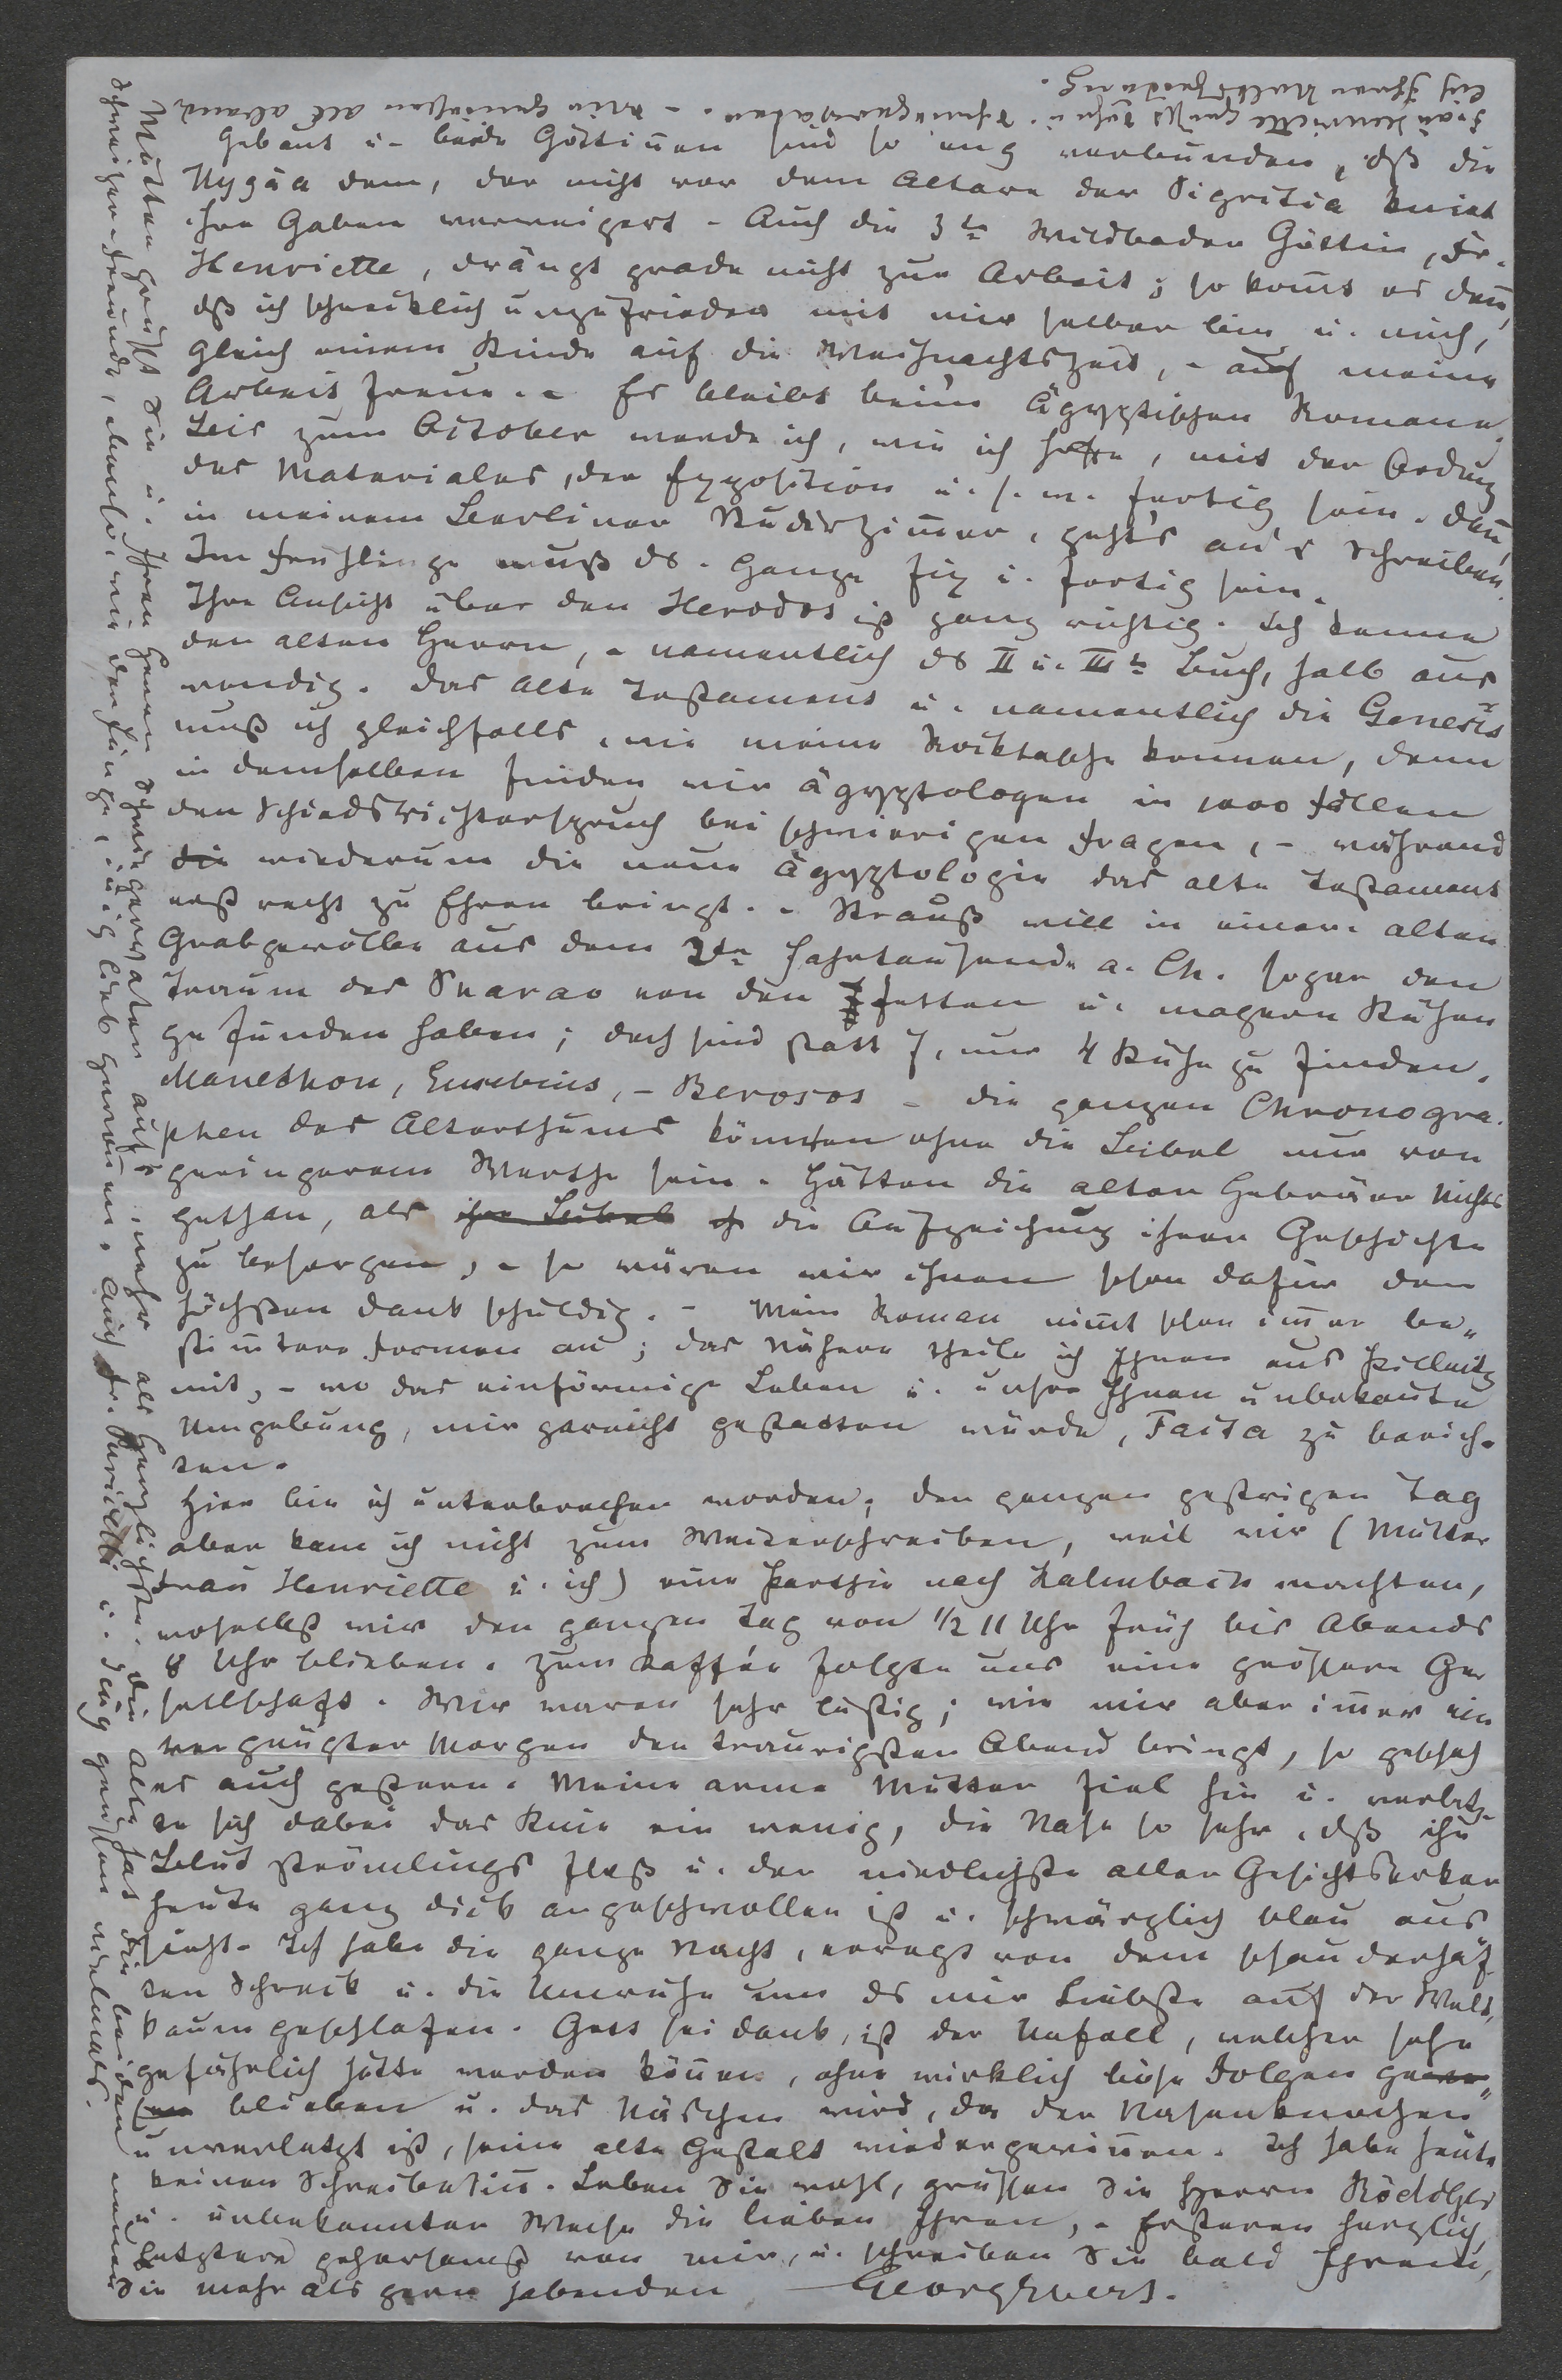 Gebaut u. beide Göttiñen sind so eng verbunden, dß die
Hygäa dem, der nicht vor dem Altare der Pigritia kniet
ihre Gaben verweigert. – Auch die 3te Wildbader Göttin, Fr.
Henriette, drängt grade nicht zur Arbeit; so komt es deñ,
dß ich schrecklich unzufrieden mit mir selber bin u. mich,
gleich einem Kinde auf die Weihnachtszeit, – auf meine
Arbeit freue. – Es bleibt beim Ägyptischen Romane.
Bis zum October werde ich, wie ich hoffe, mit der Ordnug
des Materiales, der Exposition u. s. w. fertig sein. Dañ,
in meinem Berliner Studirzimer, geht's an's Schreiben.
Im Frühlinge muß ds. Ganze fix u. fertig sein.
Ihre Ansicht über den Herodot ist ganz richtig. Ich kenne
den alten Herrn, – namentlich ds II u. IIIte Buch, halb aus
wendig. Das Alte Testament u. namentlich die Genesis
muß ich gleichfalls, wie meine Rocktasche kennen, denn
in demselben finden wir Ägyptologen in 1000 Fällen
den Schiedsrichterspruch bei schwierigen Fragen, – während
die wiederum die neue Ägyptologie das alte Testament
erst recht zu Ehren bringt. – Strauß will in einem alten
Grabgewölbe aus dem 3ten Jahrtausende a. Ch. sogar den
Traum des Pharao von den 7 fetten u. magern Kühen
gefunden haben; doch sind statt 7, nur 4 Kühe zu finden.
Manethon, Eusebius, – Berosos – die ganzen Chronogra-
phen des Alterthums könnten ohne die Bibel nur von
geringerem Werthe sein. Hätten die alten Hebräer Nichts
gethan, als ihre Bibel die Aufzeichnug ihrer Geschichte
zu besorgen, – so wären wir ihnen schon dafür den
höchsten Dank schuldig. – Mein Roman nimt schon imer be-
stimtere Formen an; das Nähere theile ich Ihnen aus Pillnitz
mit, – wo das einförmige Leben u. unsre Ihnen unbekante
Umgebung, mir gar nicht gestatten würde, Facta zu berich-
ten.
Hier bin ich unterbrochen worden; den ganzen gestrigen Tag
aber kam ich nicht zum Weiterschreiben, weil wir (Mutter
Frau Henriette u. ich) eine Parthie nach Kalmbach machten,
woselbst wir den ganzen Tag von 1/2 11 Uhr früh bis Abends
8 Uhr blieben. Zum Kaffée folgte uns eine größere Ge-
sellschaft. Wir waren sehr lustig; wie mir aber imer ein
vergnügter Morgen den traurigsten Abend bringt, so geschah
es auch gestern. Meine arme Mutter fiel hin u. verletz-
te sich dabei das Knie ein wenig, die Nase so sehr, dß ihr
Blut strömlings floß u. der niedlichste aller Gesichtserker
heute ganz dick angeschwollen ist u. schwärzlich blau aus
sieht. Ich habe die ganze Nacht, erregt von dem schauderhaf-
ten Schreck u. die Unruhe um ds mir Liebste auf der Welt,
kaum geschlafen. Gott sei dank, ist der Unfall, welcher sehr
gefährlich hätte werden köñen, ohne wirklich böse Folgen ge-
blieben u. das Näschen wird, da der Nasenknochen
unverletzt ist, seine alte Gestalt wiedergewiñen. Ich habe heute
keinen Schreibesiñ. Leben Sie wohl, grüßen Sie Herrn
u. unbekannter Weise die lieben Ihren, – Ersteren herzlich,
Letztere gehorsamst von mir, u. schreiben Sie bald Ihrem,
Sie mehr als gern habenden Georg Ebers.
Mutter grüßt Sie u. Ihren Herrn Schwiegervater auf's mehr als Herzlichste. Die Alte hat die beiden neuen
Schweizer Freunde, ebenso wie der Junge, iñig lieb gewoñen. Auch Fr. u. grüßen vielmals.
Frau Henriette grüßt sehr u. Schwiegervater. – Wir genießen all abend
lich Ihren